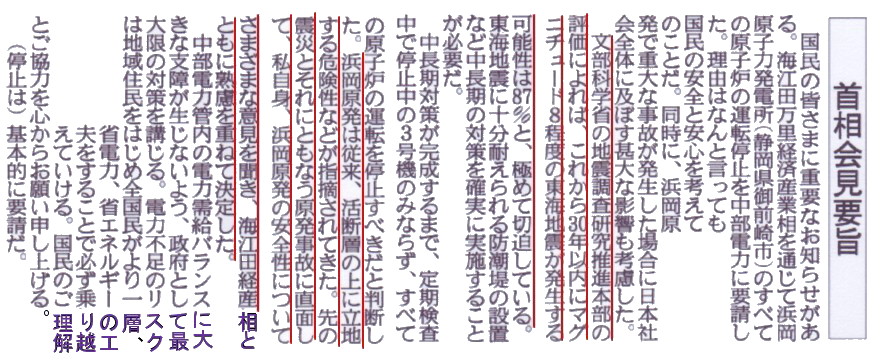 首相会見要旨
国民の皆さまに重要なお知らせがあ
る。海江田万里経済産業相を通じて浜岡
原子力発電所(静岡県御前崎市)のすべて
の原子炉の運転停止を中部電力に要請し
た。理由はなんと言っても
国民の安全と安心を考えて
のことだ。同時に、浜岡原
発で重大な事故が発生した場合に日本社
会全体に及ぼす甚大な影響も考慮した。
文部科学省の地震調査研究推進本部の
評価によれば、これから30年以内にマグ
ニチュード8程度の東海地震が発生する
可能性は87%と、極めて切迫している。
東海地震に十分耐えられる防潮堤の設置
など中長期の対策を確実に実施すること
が必要だ。
中長期対策が完成するまで、定期検査
中で停止中の3号機のみならず、すべて
の原子炉の運転を停止すべきだと判断し
た。浜岡原発は従来、活断層の上に立地
する危険性などが指摘されてきた。先の
震災とそれにともなう原発事故に直面し
て、私自身、浜岡原発の安全性について
さまざまな意見を聞き、海江田経産相と
ともに熟慮を重ねて決定した。
中部電力管内の電力需給バランスに大
きな支障が生じないよう、政府として最
大限の対策を講じる。電力不足のリスク
は地域住民をはじめ全国民がより一層、
省電力、省エネルギーの工
夫をすることで必ず乗り越
えていける。国民のご理解
とご協力を心からお願い申し上げる。
(停止は)基本的に要請だ。